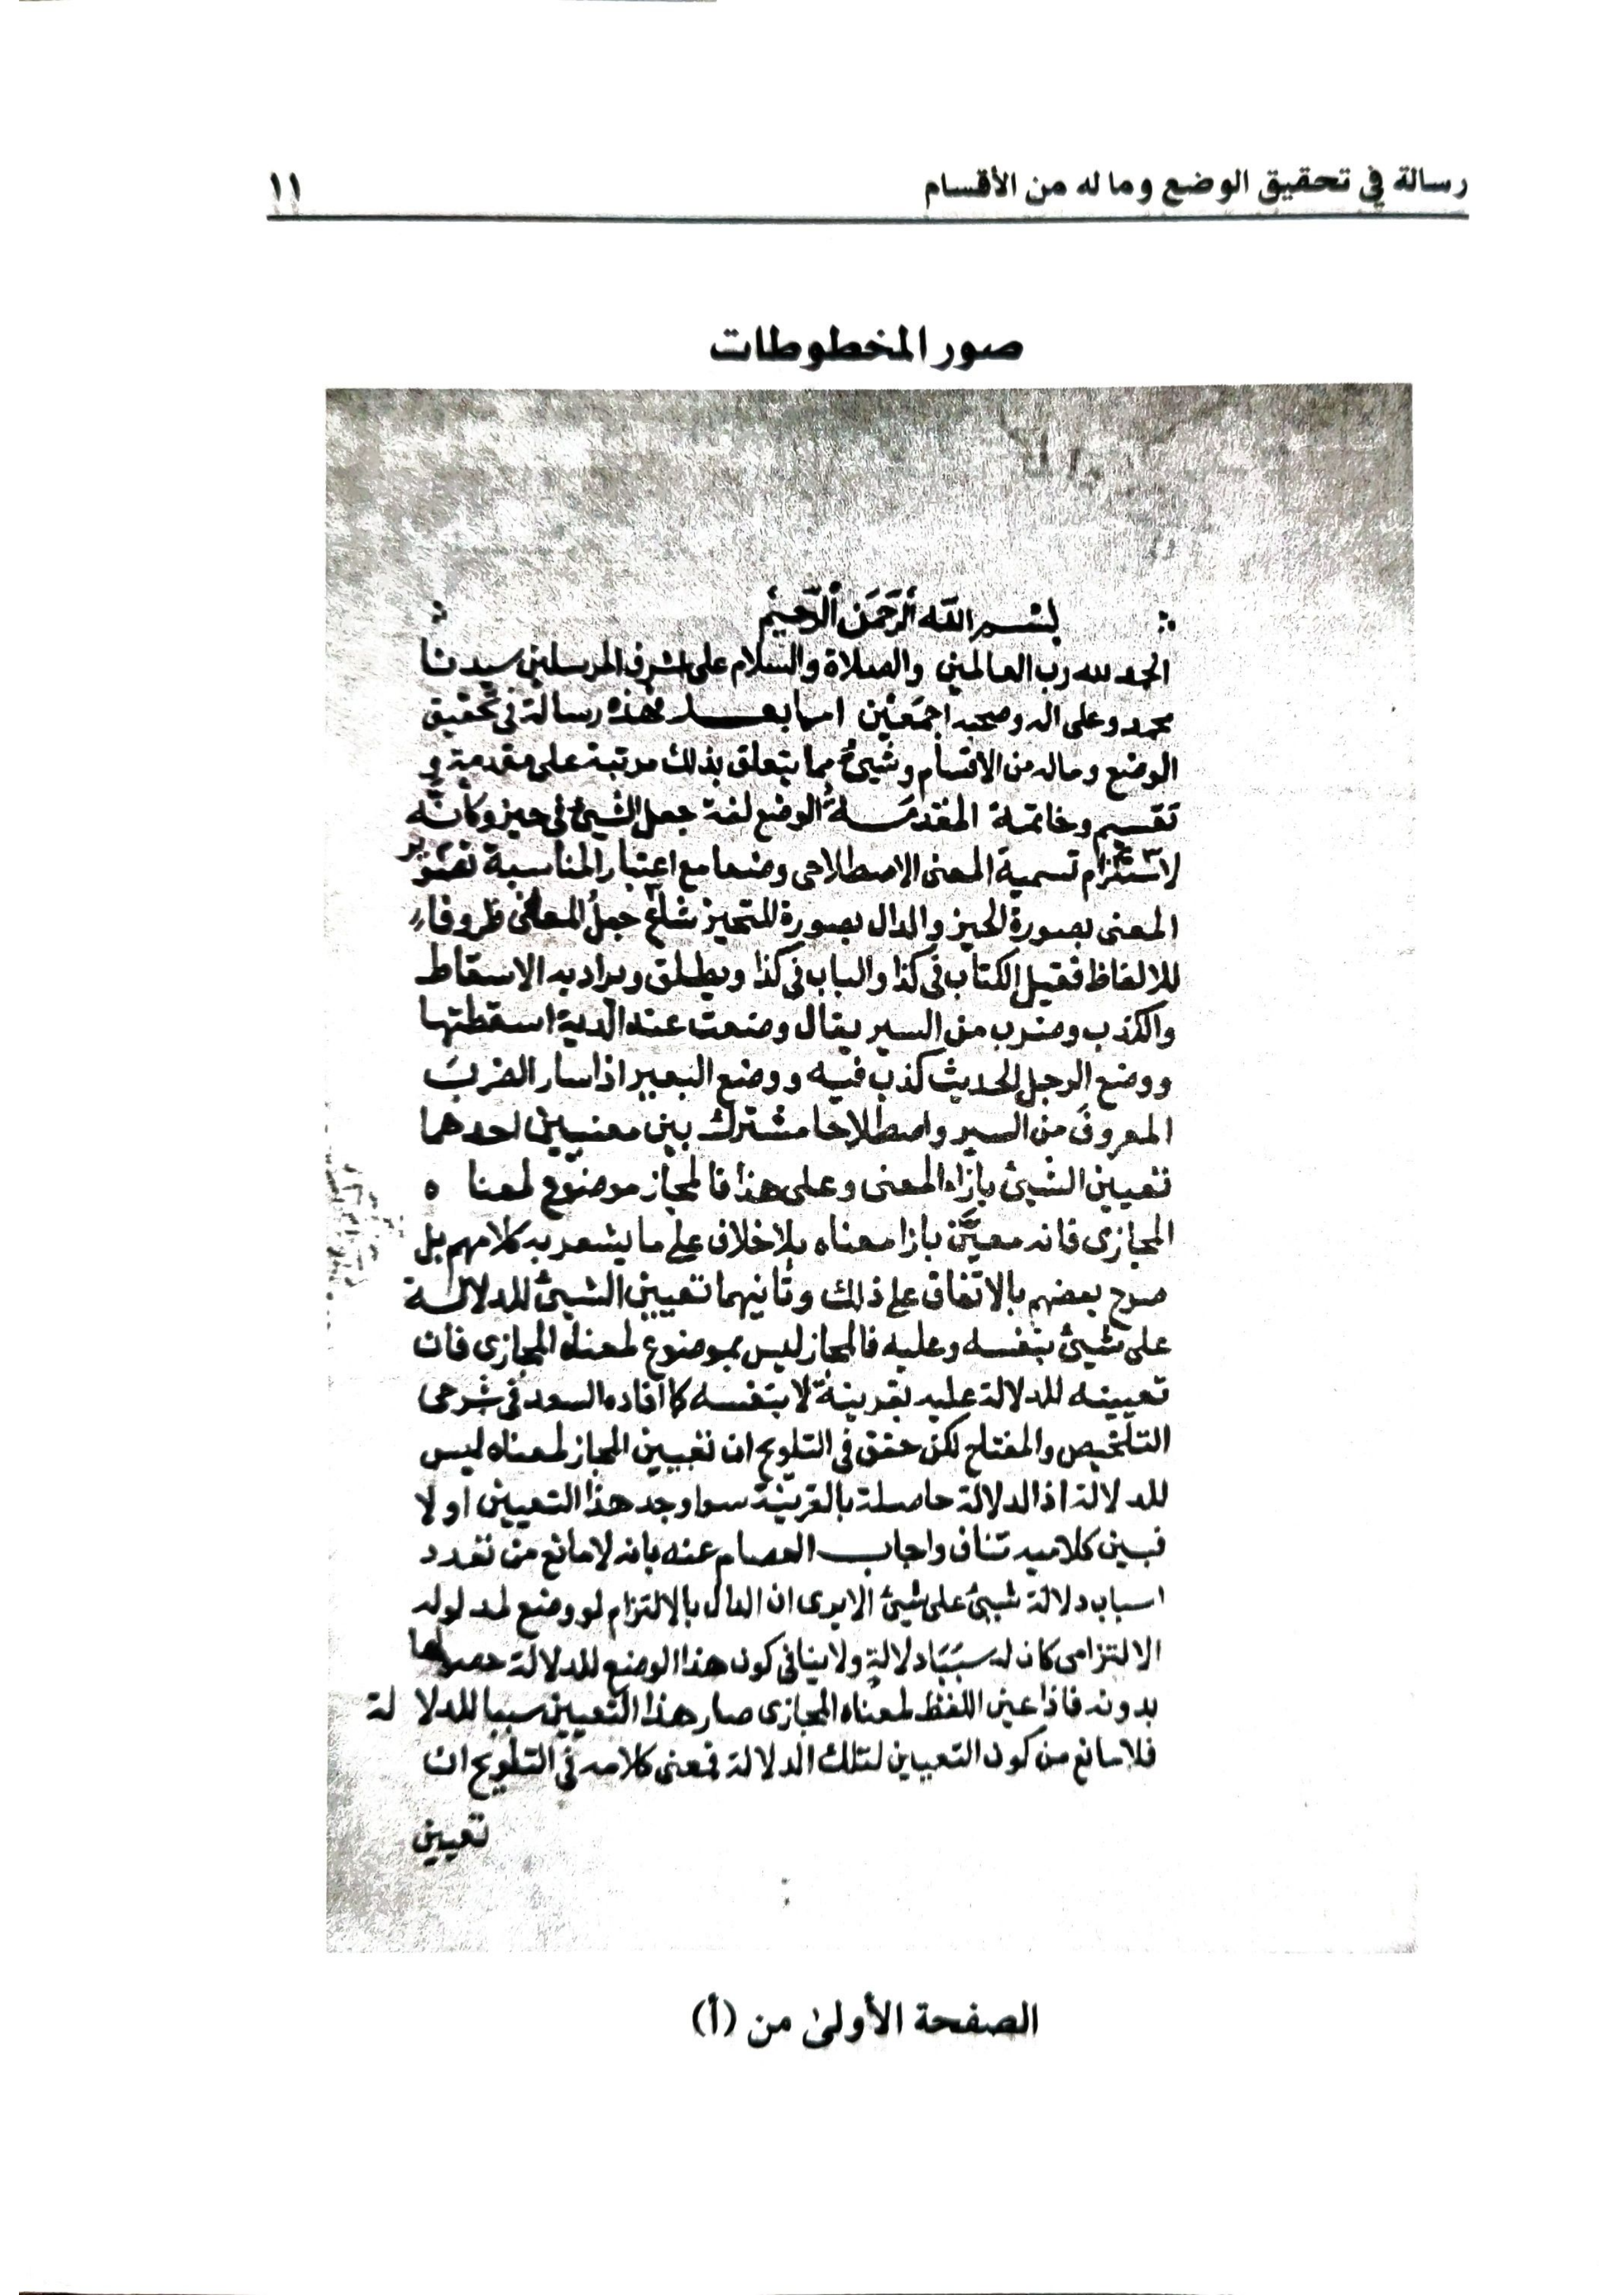 رسالة في تحقيق الوضع وما له من الأقسام
١١
صور المخطوطات
بسم الله الرحمن الرحيم
الحمد لله رب العالمين والصلاة والسلام على اشرف المرسلين سيدنا
محمد وعلى اله وصحبه اجمعين اما بعد فهذه رسالة في تحقيق
الوضع وماله من الاقسام وشيئ مما يتعلق بذلك مرتبة على مقدمة و
تقسيم وخاتمة المقدمة الوضع لغة جعل الشيئ في حيز وكانه
لاستلزام تسمية المعنى الاصطلاحى وضعا مع اعتبار المناسبة تصوير
المعنى بصورة الحيز والدال بصورة المتحيز شاع جعل المعانى ظروفا
للالفاظ فقيل الكتاب فى كذا والباب فى كذا ويطلق ويراد به الاسقاط
والكذب وضرب من السير يقال وضعت عنه الدية اسقطتها
ووضع الرجل الحديث كذب فيه ووضع البعير اذا سار الضرب
المعروف من السير واصطلاحا مشترك بين معنيين احدهما
تعيين الشيئ بازاء المعنى وعلى هذا فالمجاز موضوع لمعنا ه
المجازى فانه معين بازا معناه بلا خلاف على ما يشعر به كلامهم بل
صرح بعضهم بالاتفاق على ذلك وثانيهما تعيين الشيئ للدلالة
على شيئ بنفسه وعليه فالمجاز ليس بموضوع لمعناه المجازى فان
تعيينه للدلالة عليه بقرينة لا بنفسه كما افاده السعد فى شرحى
التلخيص والمفتاح لكن حقق فى التلويح ان تعيين المجاز لمعناه ليس
للدلالة اذ الدلالة حاصلة بالقرينة سوا وجد هذا التعيين او لا
فبين كلاميه تناف واجاب العصام عنه بانه لا مانع من تعدد
اسباب دلالة شيئ على شيئ الا يرى ان الدال بالالتزام لو وضع لمدلوله
الالتزامى كان له سببا دلالة ولا ينافى كون هذا الوضع للدلالة حصولها
بدونه فاذا عين اللفظ لمعناه المجازى صار هذا التعيين سببا للدلا لة
فلا مانع من كون التعيين لتلك الدلالة فمعنى كلامه فى التلويح ان
تعيين
الصفحة الأولى من (أ)